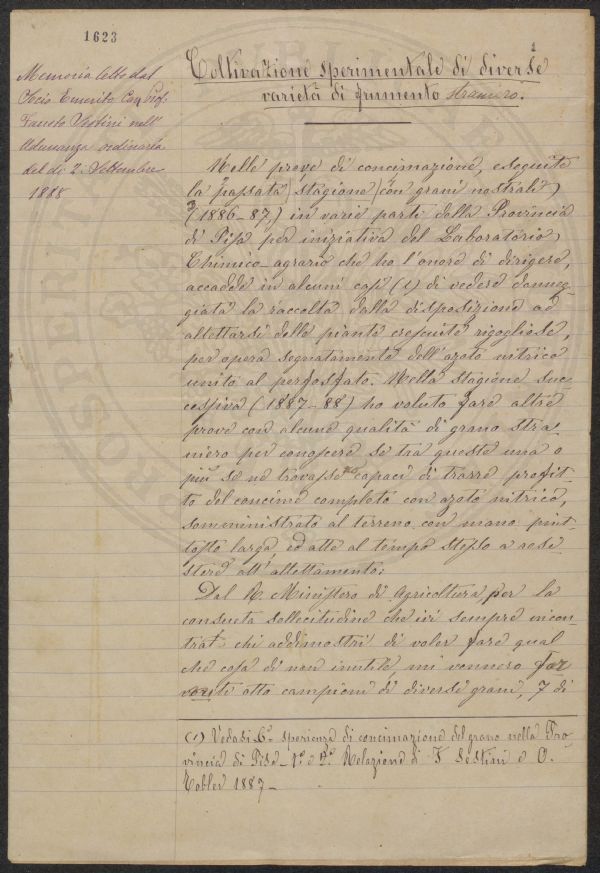 1623
1
Memoria letta dal
Socio Emerito Cav Prof.
Fausto Sestini nell'
Adunanza ordinaria
del dì 2. Settembre
1888
Coltivazione sperimentale di diverse
varietà di frumento straniero.
Nelle prove di concimazione, eseguite
la passata stagione con grani nostrali
(1886-87,) in varie parti della Provincia
di Pisa per iniziativa del Laboratorio
Chimico-agrario che ho l'onore di dirigere,
accadde in alcuni casi (1) di vedere danneg-
giata la raccolta dalla disposizione ad
allettarsi delle piante cresciute rigogliose,
per opera segnatamente dell'azoto nitrico
unito al perfosfato. Nella stagione suc-
cessiva (1887-88) ho voluto fare altre
prove con alcune qualità di grano stra-
niero per conoscere se tra queste una o
più se ne trovasse capaci di trarre profit-
to del concime completo con azoto nitrico,
somministrato al terreno con mano piut-
tosto larga, ed atte al tempo stesso a resi-
stere all'allettamento.
Dal R. Ministero di Agricoltura per la
consueta sollecitudine che ivi sempre incon-
tra chi addimostri di voler fare qual
che cosa di non inutile, mi vennero for
niti otto campioni di diversi grani, 7 di
(1) Vedasi 6a sperienza di concimazione del grano nella Pro
vincia di Pisa - 1a e 2a Relazione di F Sestini e O.
Tobler 1887-